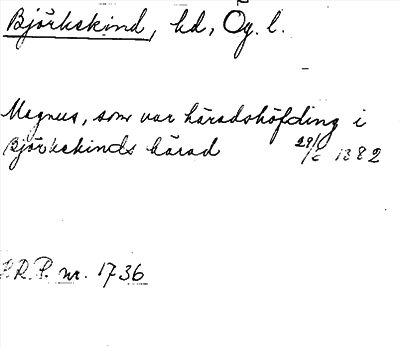 Björkekind, hd, Ög. l.
Magnus, som var häradshöfding i
Björkekinds härad 29/6 1382
P.R.P. nr. 1736